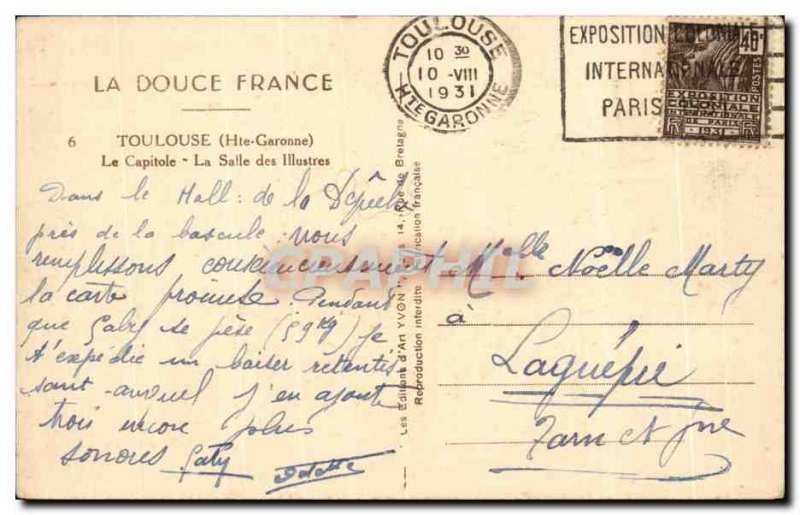 LA DOUCE FRANCE
6 TOULOUSE (Hte-Garonne)
Le Capitole - La Salle des Illustres
TOULOUSE
10 30
10 -VIII
1931
HTE GARONNE
EXPOSITION COLONIALE
INTERNATIONALE
PARIS
40c
POSTES
EXPOSITION
COLONIALE
INTERNATIONALE
DE PARIS
1931
Dans le Hall de la Dépêche
près de la bascule nous
remplissons consciencieusement
la carte promise. Pendant
que Gaby se pèse (59 Kg) je
t'expédie un baiser retentis
sant auquel j'en ajoute
trois encore plus
sonores Gaby Odette
Les Editions d'Art YVON 14, Rue de Bretagne
Reproduction interdite. Fabrication française
GRAPHIL
Melle Noëlle Marty
à
Laguépie
Tarn et Gne